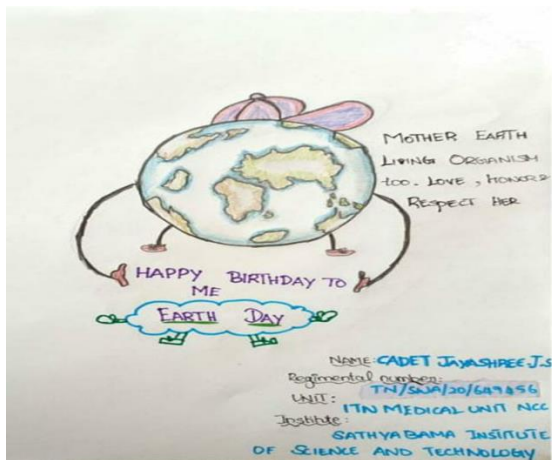 MOTHER EARTH
LIVING ORGANISM
too. LOVE, HONOR &
RESPECT HER
HAPPY BIRTHDAY TO
ME
EARTH DAY
NAME: CADET JAYASHREE J.S
Regimental number:
TN/SNA/20/649456
UNIT:
1TN MEDICAL UNIT NCC
Institute:
SATHYABAMA INSTITUTE
OF SCIENCE AND TECHNOLOGY